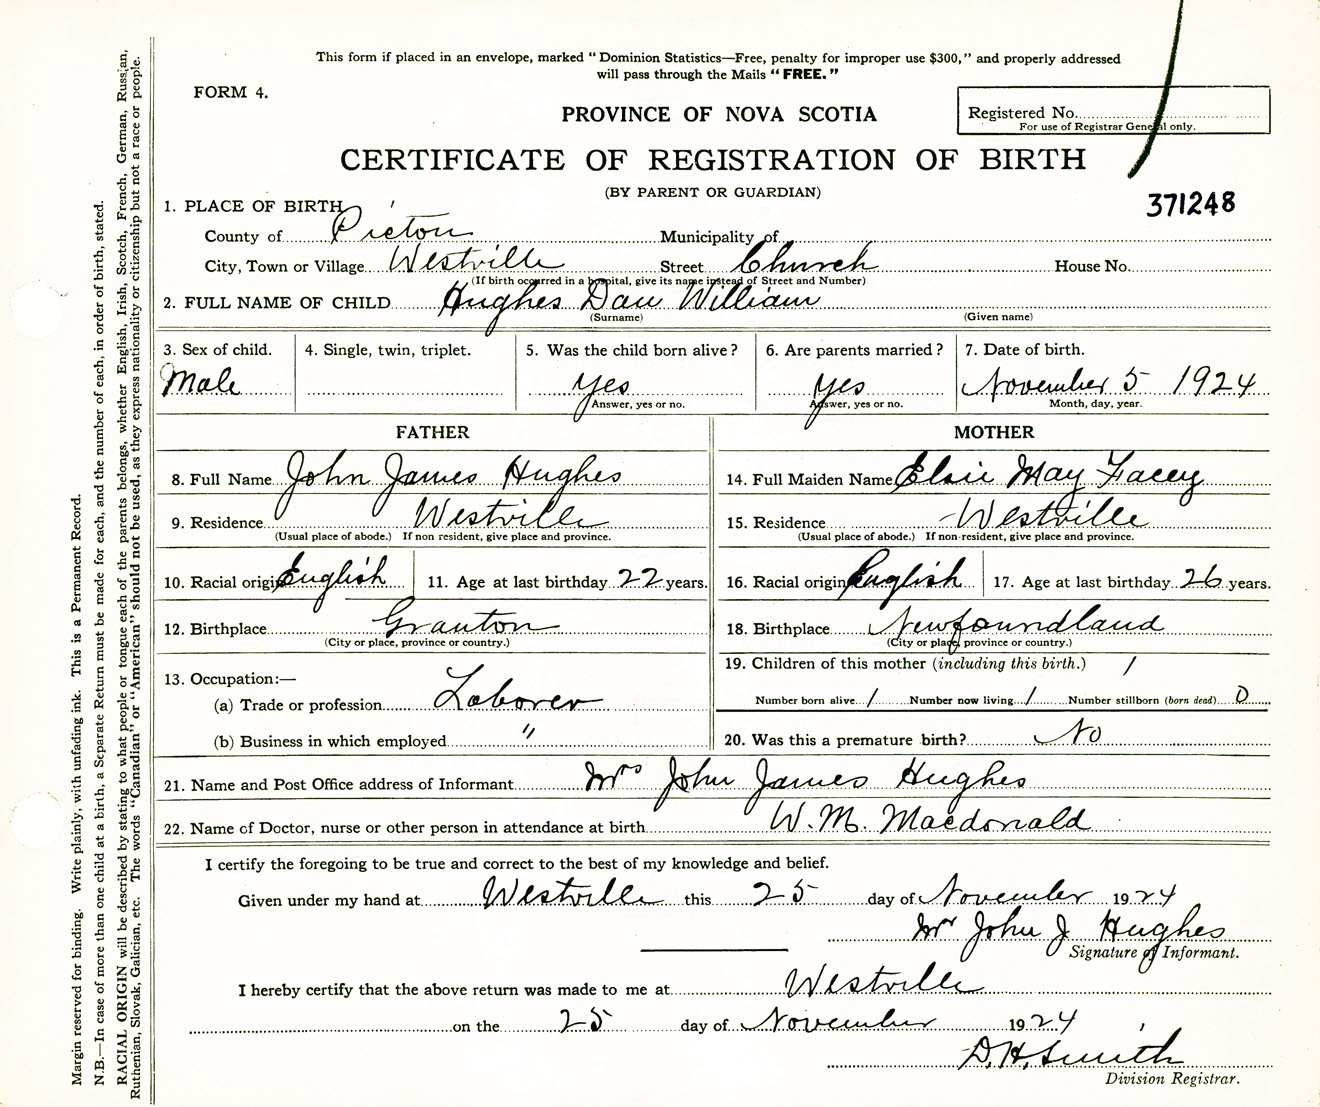 This form if placed in an envelope, marked "Dominion Statistics—Free, penalty for improper use $300," and properly addressed
will pass through the Mails "FREE."
FORM 4.
PROVINCE OF NOVA SCOTIA
Registered No.
For use of Registrar General only.
CERTIFICATE OF REGISTRATION OF BIRTH
(BY PARENT OR GUARDIAN)
371248
1. PLACE OF BIRTH
County of Pictou Municipality of
City, Town or Village Westville Street Church House No.
(If birth occurred in a hospital, give its name instead of Street and Number)
2. FULL NAME OF CHILD Hughes Dan William
(Surname) (Given name)
3. Sex of child. 4. Single, twin, triplet. 5. Was the child born alive? 6. Are parents married? 7. Date of birth.
Male Yes Yes November 5 1924
Answer, yes or no. Answer, yes or no. Month, day, year.
FATHER MOTHER
8. Full Name John James Hughes 14. Full Maiden Name Elsie May Facey
9. Residence Westville 15. Residence Westville
(Usual place of abode.) If non resident, give place and province. (Usual place of abode.) If non-resident, give place and province.
10. Racial origin English 11. Age at last birthday 22 years. 16. Racial origin English 17. Age at last birthday 26 years.
12. Birthplace Granton 18. Birthplace Newfoundland
(City or place, province or country.) (City or place, province or country.)
19. Children of this mother (including this birth.) 1
13. Occupation:—
(a) Trade or profession Laborer Number born alive 1 Number now living 1 Number stillborn (born dead) 0
(b) Business in which employed " 20. Was this a premature birth? No
21. Name and Post Office address of Informant Mrs John James Hughes
22. Name of Doctor, nurse or other person in attendance at birth W. M. Macdonald
I certify the foregoing to be true and correct to the best of my knowledge and belief.
Given under my hand at Westville this 25 day of November 1924
Mr John J Hughes
Signature of Informant.
I hereby certify that the above return was made to me at Westville
on the 25 day of November 1924
D. H. Smith
Division Registrar.
Margin reserved for binding. Write plainly, with unfading ink. This is a Permanent Record.
N.B.—In case of more than one child at a birth, a Separate Return must be made for each, and the number of each, in order of birth, stated.
RACIAL ORIGIN will be described by stating to what people or tongue each of the parents belongs, whether English, Irish, Scotch, French, German, Russian,
Ruthenian, Slovak, Galician, etc. The words "Canadian" or "American" should not be used, as they express nationality or citizenship but not a race or people.